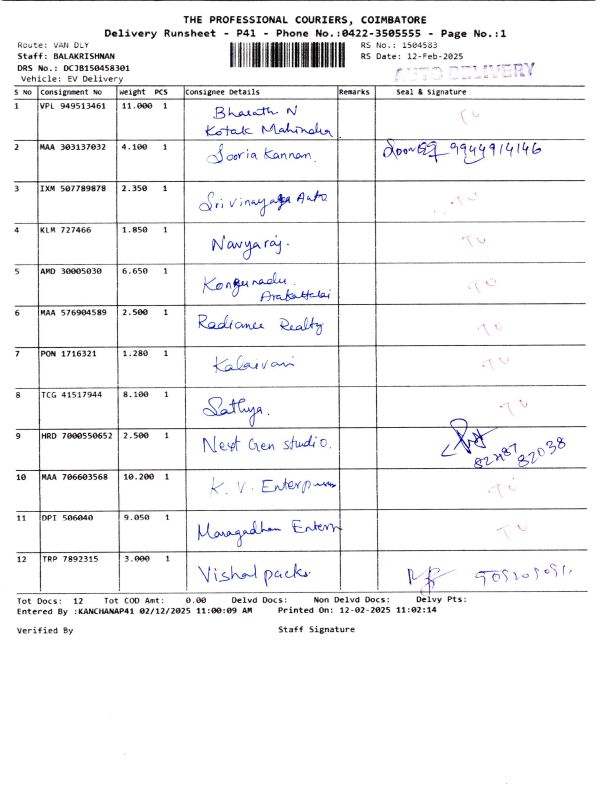 THE PROFESSIONAL COURIERS, COIMBATORE
Delivery Runsheet - P41 - Phone No.:0422-3505555 - Page No.:1
Route: VAN DLY
RS No.: 1504583
Staff: BALAKRISHNAN
RS Date: 12-Feb-2025
DRS No.: DCJB150458301
AUTO DELIVERY
Vehicle: EV Delivery
S No Consignment No Weight PCS Consignee Details Remarks Seal & Signature
1 VPL 949513461 11.000 1 Bharath N
Kotak Mahindra
TU
2 MAA 303137032 4.100 1 Sooria Kannan. 9944914146
3 IXM 507789878 2.350 1 Sri Vinayaga Auto TU
4 KLM 727466 1.850 1 Navyaraj. TU
5 AMD 30005030 6.650 1 Kongunadu
Arakattalai
TU
6 MAA 576904589 2.500 1 Radiance Realty TU
7 PON 1716321 1.280 1 Kalaivani TU
8 TCG 41517944 8.100 1 Sathya. TU
9 HRD 7000550652 2.500 1 Next Gen Studio.
82038
10 MAA 706603568 10.200 1 K. V. Enterprises TU
11 DPI 506040 9.050 1 Enterp TU
12 TRP 7892315 3.000 1 Vishal packs.
Tot Docs: 12 Tot COD Amt: 0.00 Delvd Docs: Non Delvd Docs: Delvy Pts:
Entered By :KANCHANAP41 02/12/2025 11:00:09 AM Printed On: 12-02-2025 11:02:14
Verified By Staff Signature